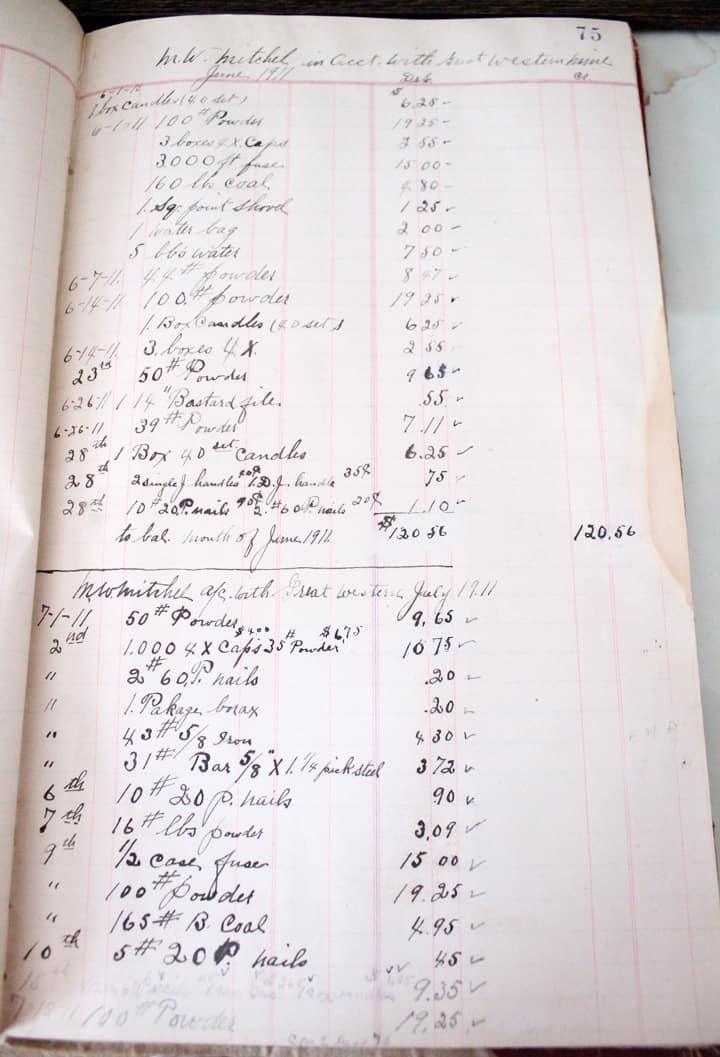 75
M.W. Mitchel in acct. with Great Western Mine
June 1911 Deb. Cr.
1 box Candles (40 set) $ 6.25
6-1-11 100# Powder 19 25
3 boxes 4X Caps 2 55
3000 ft fuse 15 00
160 lbs coal 4 80
1. Sq. point shovel 1 25
1 water bag 2 00
5 bbs water 7 50
6-7-11. 44# powder 8 47
6-14-11. 100# powder 19 25
1. Box Candles (40 set) 6 25
6-14-11. 3. boxes 4 X. 2 55
23rd 50# Powder 9 65
6-26-11 1 14" Bastard file .55
6-26-11 39# Powder 7.11
28th 1 Box 40 set candles 6.25
28th 2 single J. handles 40¢ 1. D.J. handle 35¢ 75
28th 10# 20 P. nails 90¢ 2. #60 P. nails 20¢ 1.10
to bal. month of June 1911. $120 56 120.56
M.W. Mitchel a/c. with Great Western July 1911
7-1-11 50# Powder 9.65
2nd 1.000 4X Caps $4.00 35# Powder $6.75 10 75
" 2# 60 P. nails .20
" 1. Pakage borax .20
" 43# 5/8 Iron 4 30
" 31# Bar 5/8" X 1.1/4 pick steel 3 72
6th 10# 20 P. nails 90
7th 16# lbs powder 3.09
9th 1/2 case fuse 15 00
" 100# Powder 19.25
" 165# B. Coal 4.95
10th 5# 20 P. nails 45
15th 9.35
100# Powder 19.25